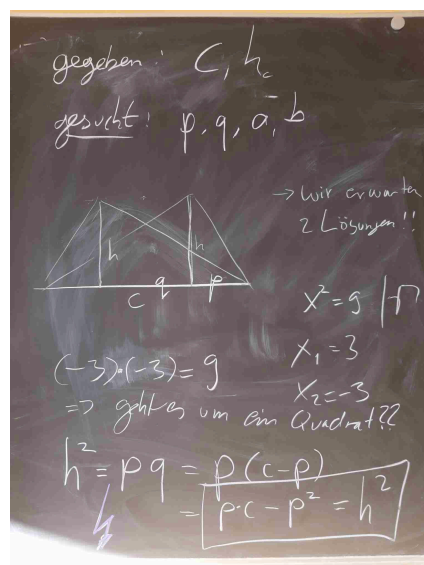 gegeben: C, hc
gesucht: p, q, a, b
→ Wir erwarten
2 Lösungen!!
h
h
c
q
p
x² = 9 |√
x₁ = 3
x₂ = -3
(-3)·(-3) = 9
=> geht es um ein Quadrat??
h² = p q = p(c-p)
= p·c - p² = h²